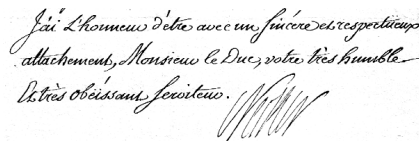 J'ai L'honneur d'être avec un sincère et respectueux
attachement, Monsieur le Duc, votre très humble
Et très obéissant serviteur.